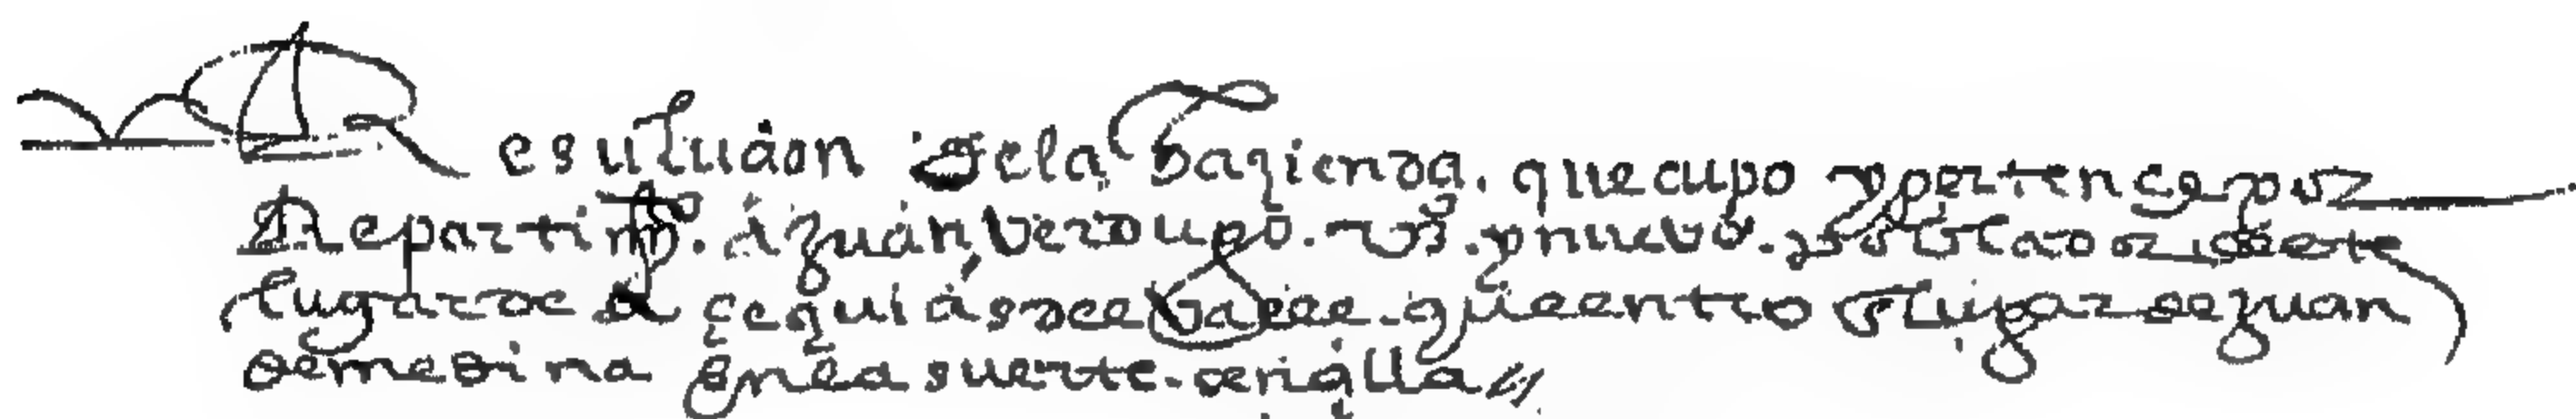 Resuluçion de la hazienda. que cupo y perteneçe por
Repartimyº. a Juan, Verdugo. vº. y nuevo. poblador deste
lugar de açequias del valle. que entro en lugar de Juan
de medina en la suerte. senzilla